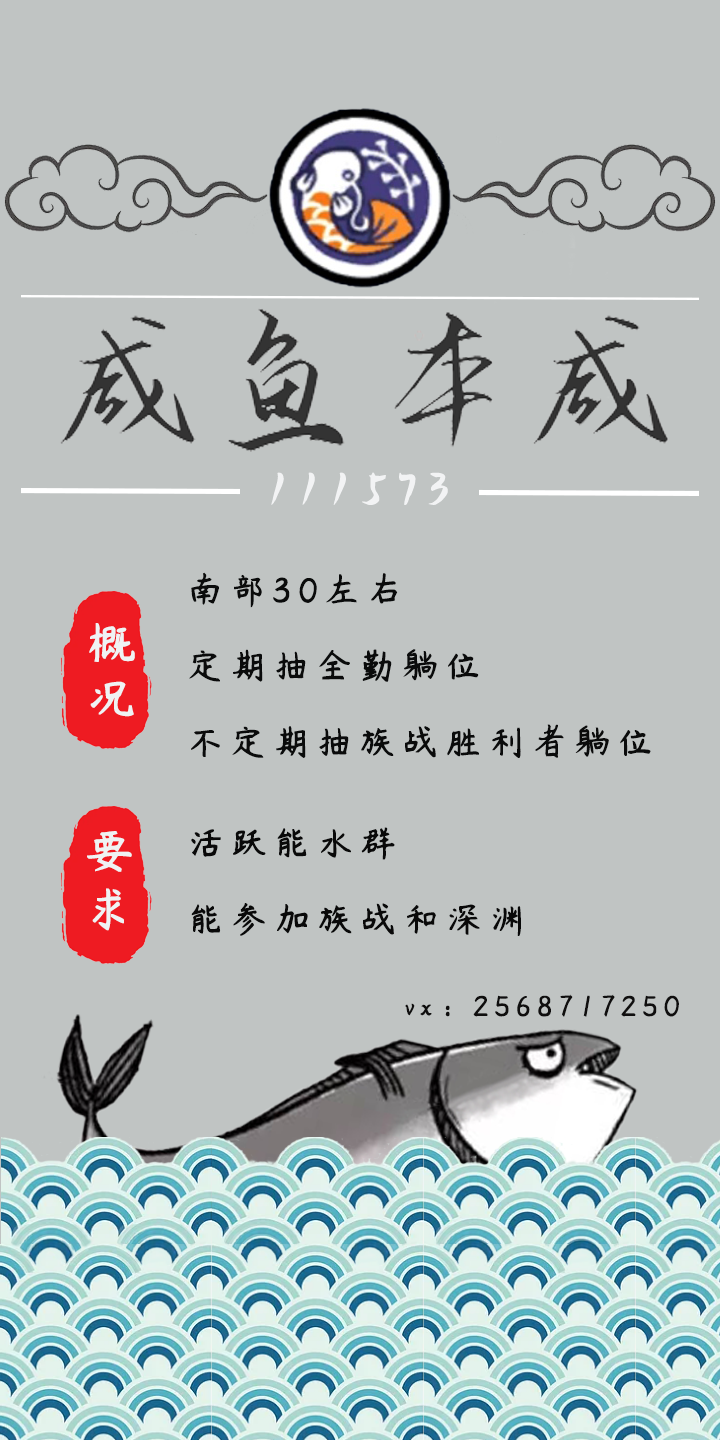 咸鱼本咸
111573
概况
南部30左右
定期抽全勤躺位
不定期抽族战胜利者躺位
要求
活跃能水群
能参加族战和深渊
vx：2568717250